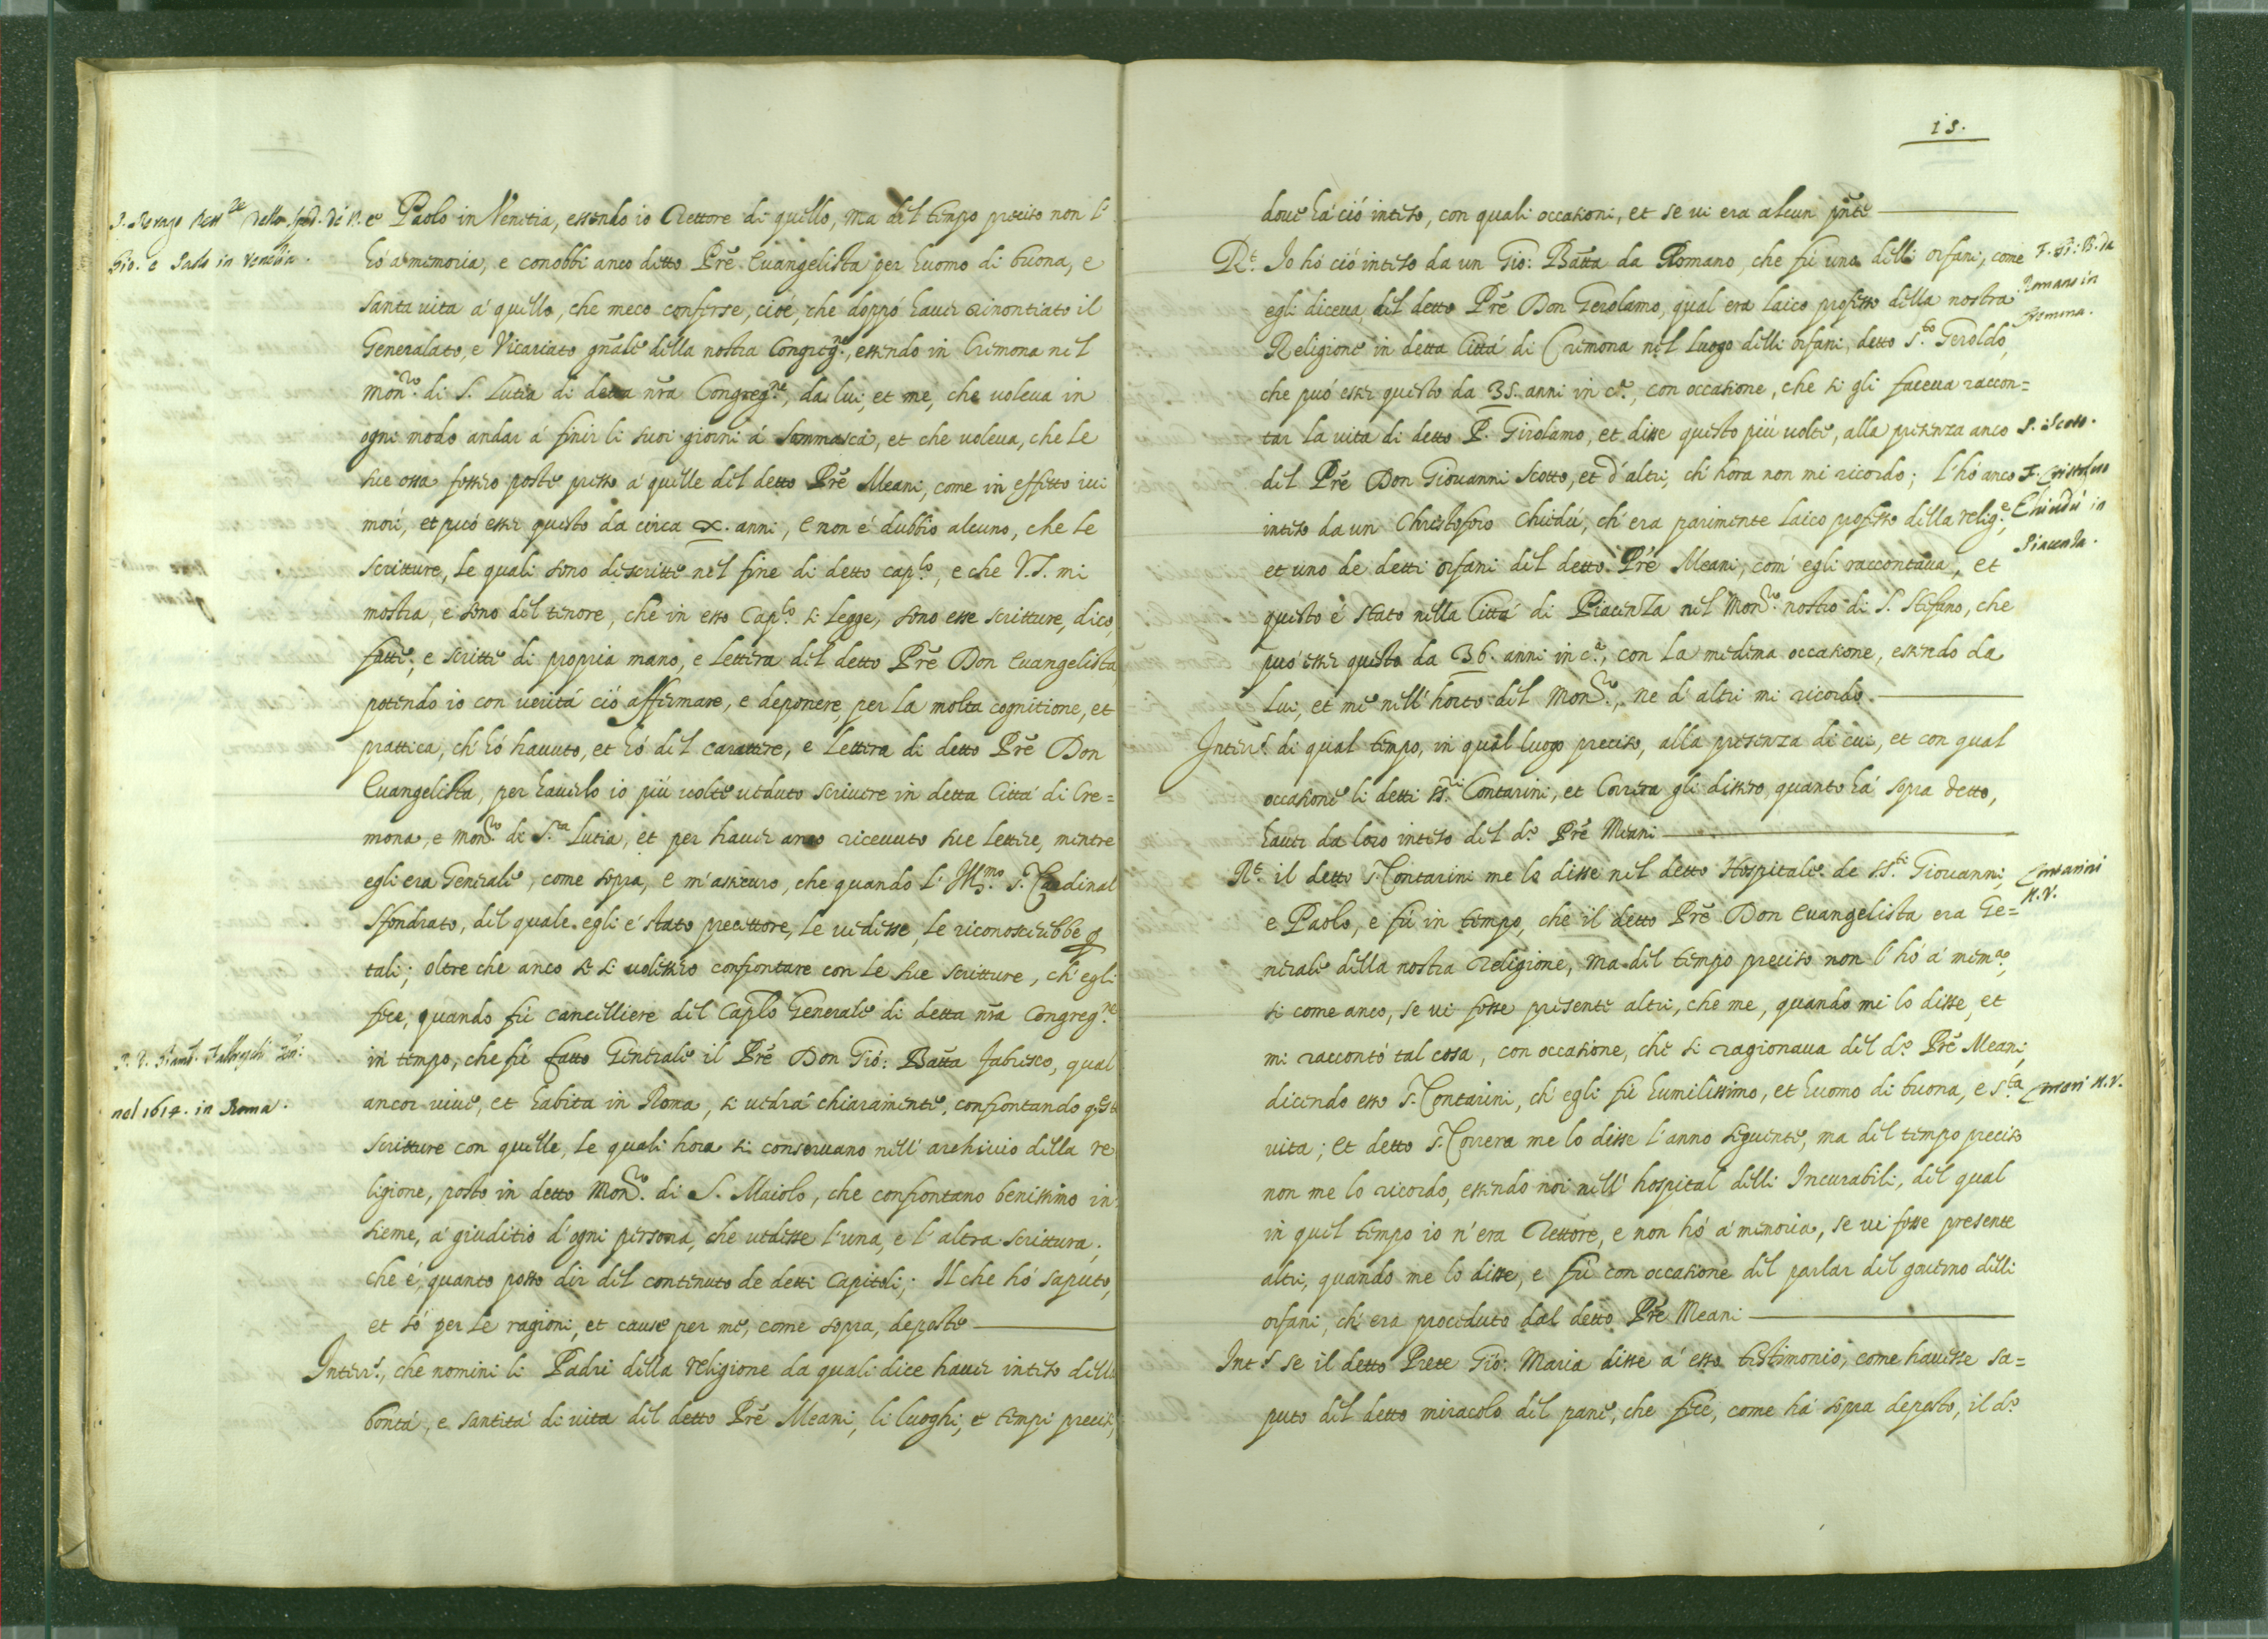 e Paolo in Venetia, essendo io Rettore di quello, ma del tempo preciso non l'
hò a memoria, e conobbi anco detto Prē Euangelista per huomo di buona, e
santa vita a' quello, che meco conferse, cioè, che doppò hauer rinontiato il
Generalato, e Vicariato gnāle della nostra Congreg.ne, essendo in Cremona nel
Mon.ro di S. Lutia di detta nr̄a Congreg.ne, da lui, et me, che uoleua in
ogni modo andar a' finir li suoi giorni a' Sommasca, et che uoleua, che le
sue ossa fossero poste presso a' quelle del detto Prē Meani, come in effetto iui
morì, et può esser questo da circa X. anni, e non è dubbio alcuno, che le
scritture, le quali sono descritte nel fine di detto cap.lo, e che V.S. mi
mostra, e sono del tenore, che in esso Cap.lo si legge, sono esse scritture, dico,
fatte, e scritte di propria mano, e lettera del detto Prē Don Euangelista
potendo io con uerità ciò affermare, e deponere, per la molta cognitione, et
prattica, ch' hò hauuto, et hò del carattere, e lettera di detto Prē Don
Euangelista, per hauerlo io più uolte ueduto scriuere in detta Città di Cre=
mona, e Mon.ro di S.ta Lutia, et per hauer anco riceuuto sue lettere, mentre
egli era Generale, come sopra, e m'assicuro, che quando l' Ill.mo S. Cardinal
Sfondrato, del quale egli è stato precettore, le uedesse, le riconoscerebbe p
tali; oltre che anco se si uolessero confrontare con le sue scritture, ch' egli
fece, quando fù cancelliere del Caplo Generale di detta nr̄a Congreg.ne
in tempo, che fù fatto Generale il Prē Don Gio: Batta Fabresco, qual
ancor uiue, et habita in Roma, si uedrà chiaramente, confrontando q.ste
scritture con quelle, le quali hora si conseruano nell' archiuio della re
ligione, posto in detto Mon.ro di S. Maiolo, che confrontano benissimo in
sieme, a' giuditio d' ogni persona, che uedesse l' una, e l' altra scrittura,
che è, quanto posso dir del contenuto de detti Capitoli; Il che hò saputo,
et sò per le ragioni, et cause per me, come sopra, deposte
Interr.s, che nomini li Padri della religione da quali dice hauer inteso della
bontà, e santità di uita del detto Prē Meani, li luoghi, e tempi precisi,
nel 1614. in Roma.
15.
doue hà ciò inteso, con quali occasioni, et se ui era alcun pn̄te
R.t Io hò ciò inteso da un Gio: Batta da Romano, che fù uno delli orfani, come
egli diceua, del detto Prē Don Gerolamo, qual era laico professo della nostra
Religione in detta Città di Cremona nel luogo delli orfani, detto S.to Geroldo,
che può esser questo da 35. anni in c.a, con occasione, che si gli faceua raccon=
tar la vita di detto P. Girolamo, et disse questo più uolte, alla presenza anco
del Prē Don Giouanni Scotto, et d' altri, ch' hora non mi ricordo; l' hò anco
inteso da un Christoforo Chiedù, ch' era parimente laico professo della relig.e,
et uno de detti orfani del detto Prē Meani, com' egli raccontaua, et
questo è stato nella Città di Piacenza nel Mon.ro nostro di S. Stefano, che
può esser questo da 36. anni in c.a, con la medema occasione, essendo da
lui, et me nell' horto del Mon.ro, ne d' altri mi ricordo.
Interr.s di qual tempo, in qual luogo preciso, alla presenza di cui, et con qual
occasione li detti ss.ri Contarini, et Correra gli dissero, quanto hà sopra detto,
hauer da loro inteso del d.o Prē Meani
R.t il detto S. Contarini me lo disse nel detto Hospitale de S.S.ti Giouanni,
e Paolo, e fù in tempo, che il detto Prē Don Euangelista era Ge=
nerale della nostra Religione, ma del tempo preciso non l' hò a' mem.a,
si come anco, se ui fosse presente altri, che me, quando mi lo disse, et
mi raccontò tal cosa, con occasione, che si ragionaua del d.o Prē Meani,
dicendo esso S. Contarini, ch' egli fù humilissimo, et huomo di buona, e s.ta
vita; et detto S. Correra me lo disse l' anno seguente, ma del tempo preciso
non me lo ricordo, essendo noi nell' hospital delli Incurabili, del qual
in quel tempo io n' era Rettore, e non hò a' memoria, se ui fosse presente
altri, quando me lo disse, e fù con occasione del parlar del gouerno delli
orfani, ch' era proceduto dal detto Prē Meani
Int.s se il detto Prete Gio: Maria disse a' esso testimonio, come hauesse sa=
puto del detto miracolo del pane, che fece, come hà sopra deposto, il d.o
F. Gi: B. da
Romano in
Cremona.
P. Scoto.
F. Cristoforo
Chiedù in
Piacenza.
Contarini
N.V.
N.V.